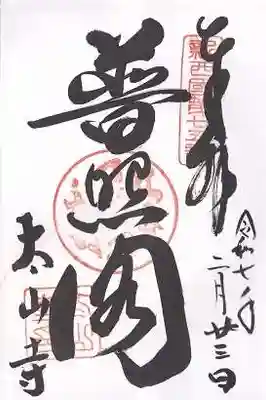 奉拝
普照閣
太山寺
令和七年
二月廿三日